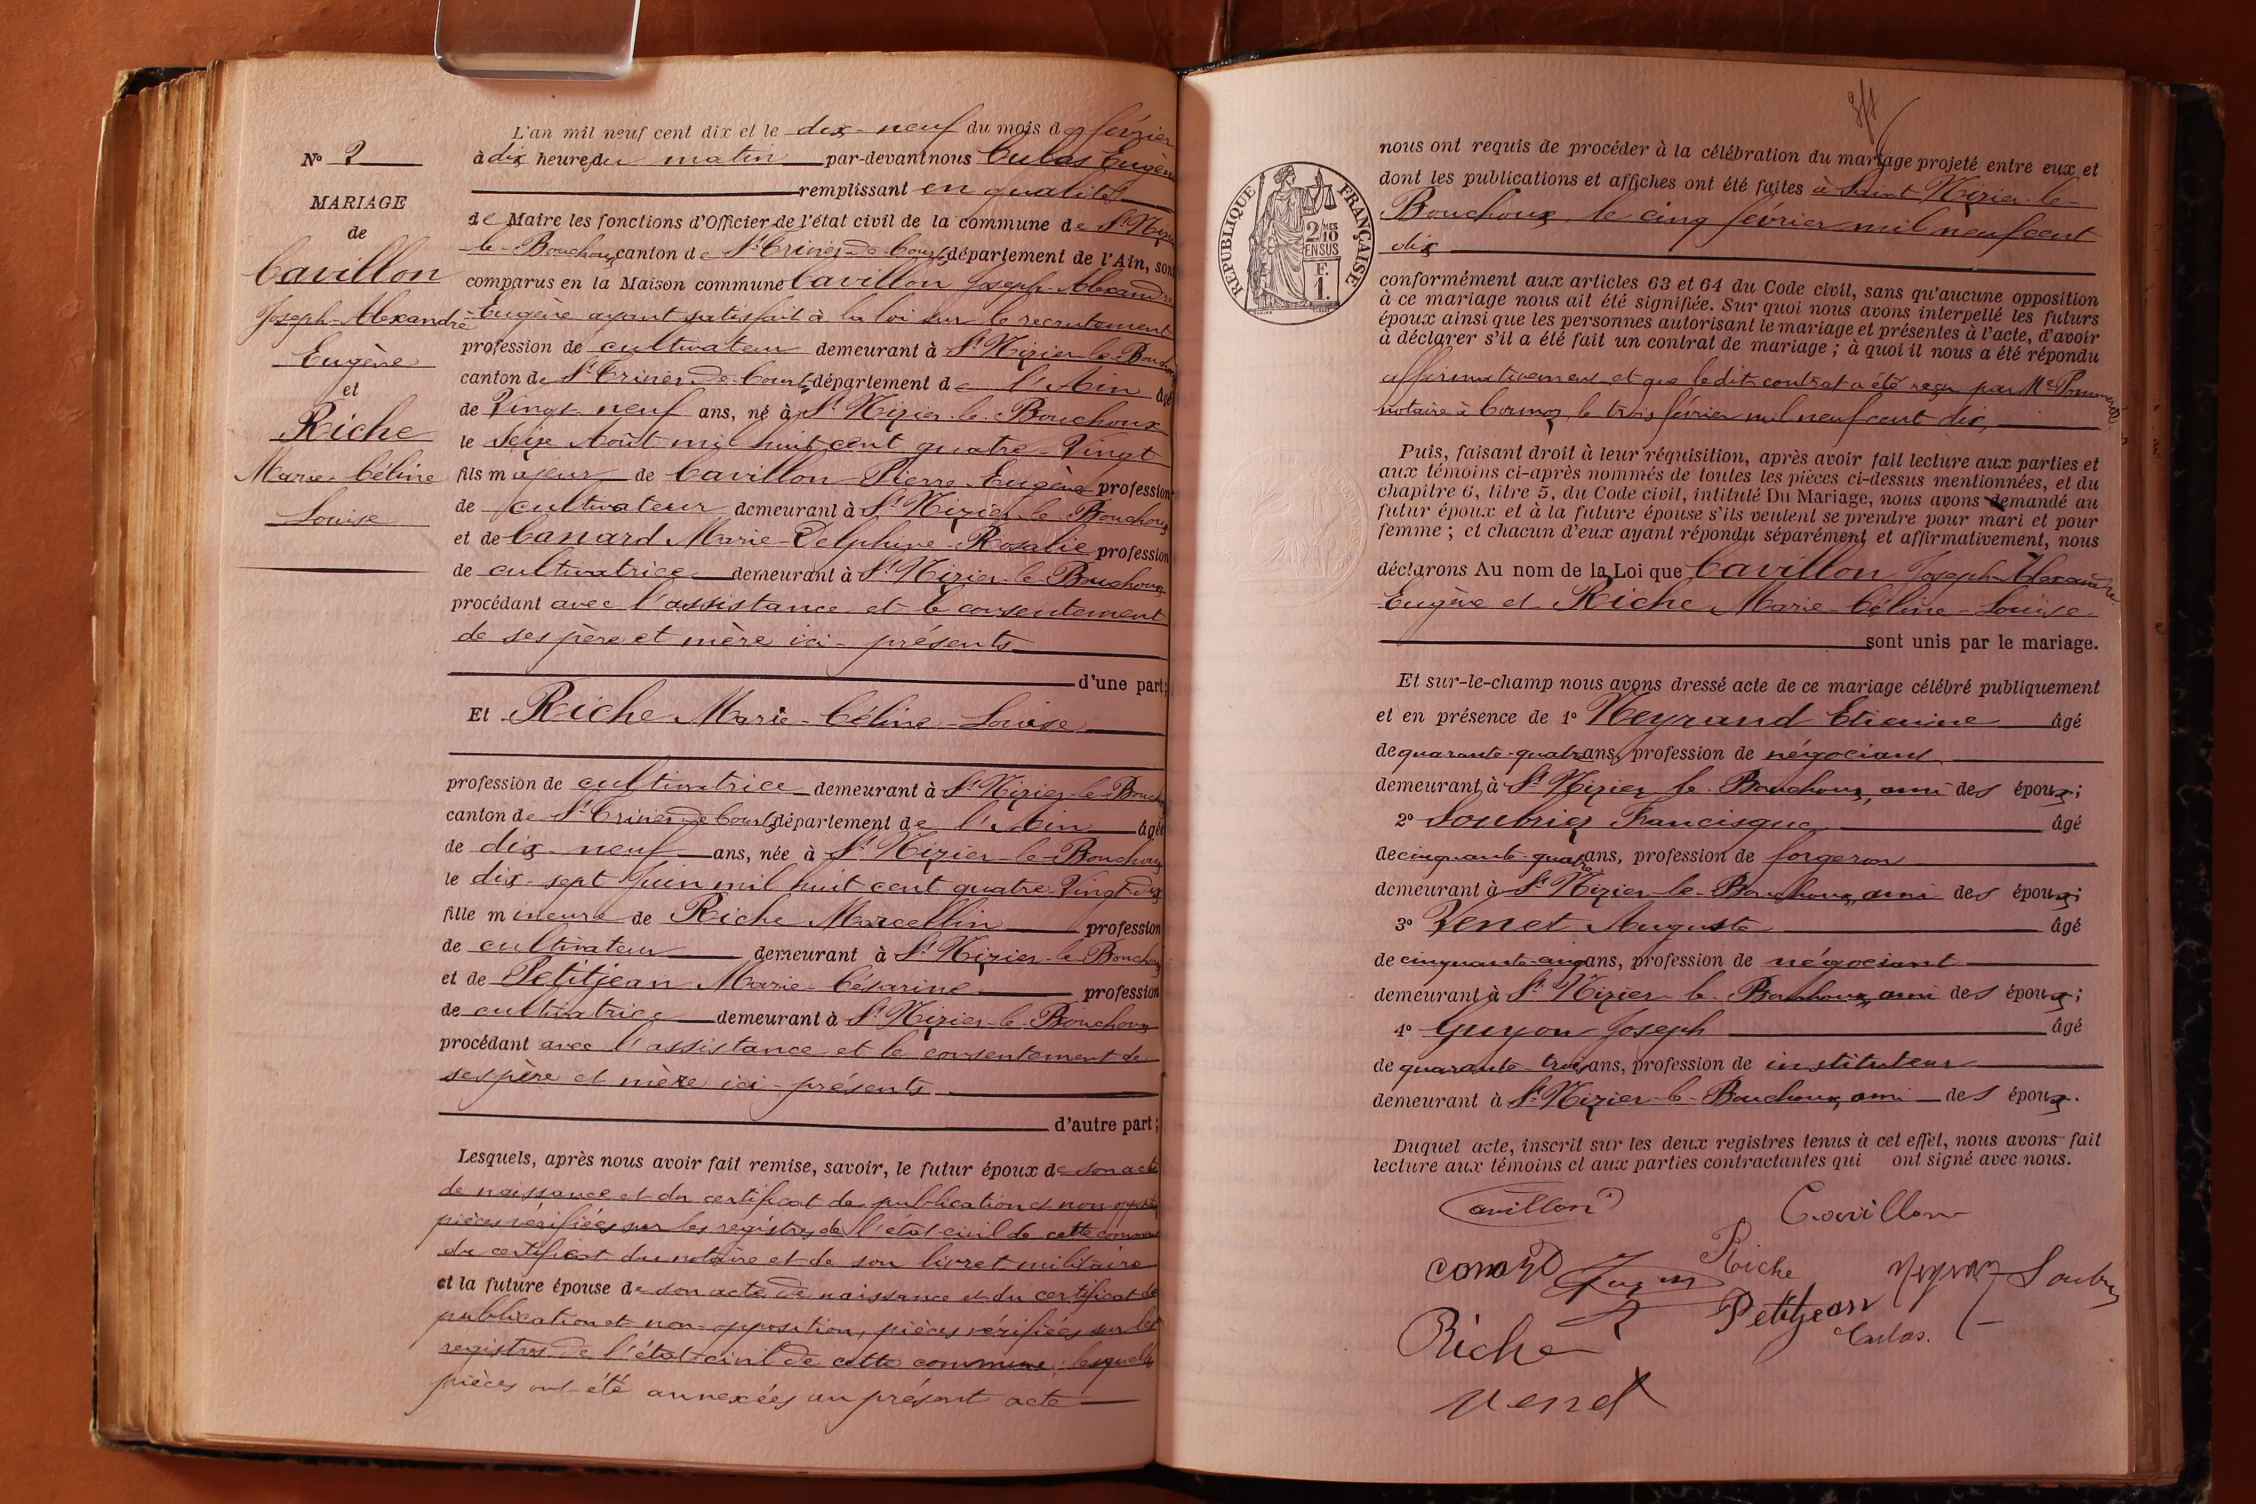 L'an mil neuf cent dix et le dix-neuf du mois de février
N° 2
à dix heures du matin par-devant nous Culas Eugène
remplissant en qualité
MARIAGE
de Maire les fonctions d'Officier de l'état civil de la commune de St Nizier
de
le-Bouchoux canton de St Trivier-de-Courtes département de l'Ain, sont
Cavillon
comparus en la Maison commune Cavillon Joseph-Alexandre
Joseph-Alexandre
-Eugène ayant satisfait à la loi sur le recrutement
Eugène
profession de cultivateur demeurant à St Nizier-le-Bouchoux
et
canton de St Trivier-de-Courtes département de l'Ain âgé
Riche
de Vingt-neuf ans, né à St Nizier-le-Bouchoux
le Seize Août mil huit cent quatre-Vingt
Marie-Céline
fils majeur de Cavillon Pierre-Eugène profession
Louise
de cultivateur demeurant à St Nizier-le-Bouchoux
et de Canard Marie-Delphine-Rosalie profession
de cultivatrice demeurant à St Nizier-le-Bouchoux
procédant avec l'assistance et le consentement
de ses père et mère ici-présents
d'une part;
Et Riche Marie-Céline-Louise
profession de cultivatrice demeurant à St Nizier-le-Bouchoux
canton de St Trivier-de-Courtes département de l'Ain âgée
de dix-neuf ans, née à St Nizier-le-Bouchoux
le dix-sept Juin mil huit cent quatre-Vingt-dix
fille mineure de Riche Marcellin profession
de cultivateur demeurant à St Nizier-le-Bouchoux
et de Petitjean Marie-Césarine profession
de cultivatrice demeurant à St Nizier-le-Bouchoux
procédant avec l'assistance et le consentement de
ses père et mère ici-présents
d'autre part;
Lesquels, après nous avoir fait remise, savoir, le futur époux de son acte
de naissance et du certificat de publication et non opposition
pièces vérifiées sur les registres de l'état-civil de cette commune
du certificat du notaire et de son livret militaire
et la future épouse de son acte de naissance et du certificat de
publication et non-opposition, pièces vérifiées sur les
registres de l'état-civil de cette commune; lesquelles
pièces ont été annexées au présent acte
nous ont requis de procéder à la célébration du mariage projeté entre eux et
dont les publications et affiches ont été faites à Saint Nizier-le-
Bouchoux, le cinq février mil neuf cent
dix
RÉPUBLIQUE FRANÇAISE
2 MES
10
EN SUS
F.
1.
conformément aux articles 63 et 64 du Code civil, sans qu'aucune opposition
à ce mariage nous ait été signifiée. Sur quoi nous avons interpellé les futurs
époux ainsi que les personnes autorisant le mariage et présentes à l'acte, d'avoir
à déclarer s'il a été fait un contrat de mariage; à quoi il nous a été répondu
affirmativement et que ledit contrat a été reçu par Me
notaire à Cormoz, le trois février mil neuf cent dix,
Puis, faisant droit à leur réquisition, après avoir fait lecture aux parties et
aux témoins ci-après nommés de toutes les pièces ci-dessus mentionnées, et du
chapitre 6, titre 5, du Code civil, intitulé Du Mariage, nous avons demandé au
futur époux et à la future épouse s'ils veulent se prendre pour mari et pour
femme; et chacun d'eux ayant répondu séparément et affirmativement, nous
déclarons Au nom de la Loi que Cavillon Joseph-Alexandre
Eugène et Riche Marie-Céline-Louise
sont unis par le mariage.
Et sur-le-champ nous avons dressé acte de ce mariage célébré publiquement
et en présence de 1° Neyrand Etienne âgé
de quarante-quatre ans, profession de négociant
demeurant à St Nizier-le-Bouchoux, ami des époux;
2° Soubrier Francisque âgé
de cinquante-quatre ans, profession de forgeron
demeurant à St Nizier-le-Bouchoux, ami des époux;
3° Venet Auguste âgé
de cinquante-cinq ans, profession de négociant
demeurant à St Nizier-le-Bouchoux, ami des époux;
4° Guyon Joseph âgé
de quarante-trois ans, profession de instituteur
demeurant à St Nizier-le-Bouchoux, ami des époux.
Duquel acte, inscrit sur les deux registres tenus à cet effet, nous avons fait
lecture aux témoins et aux parties contractantes qui ont signé avec nous.
Cavillon Cavillon
canard Guyon Riche Neyrand Soubrier
Petitjean Culas.
Riche
Venet